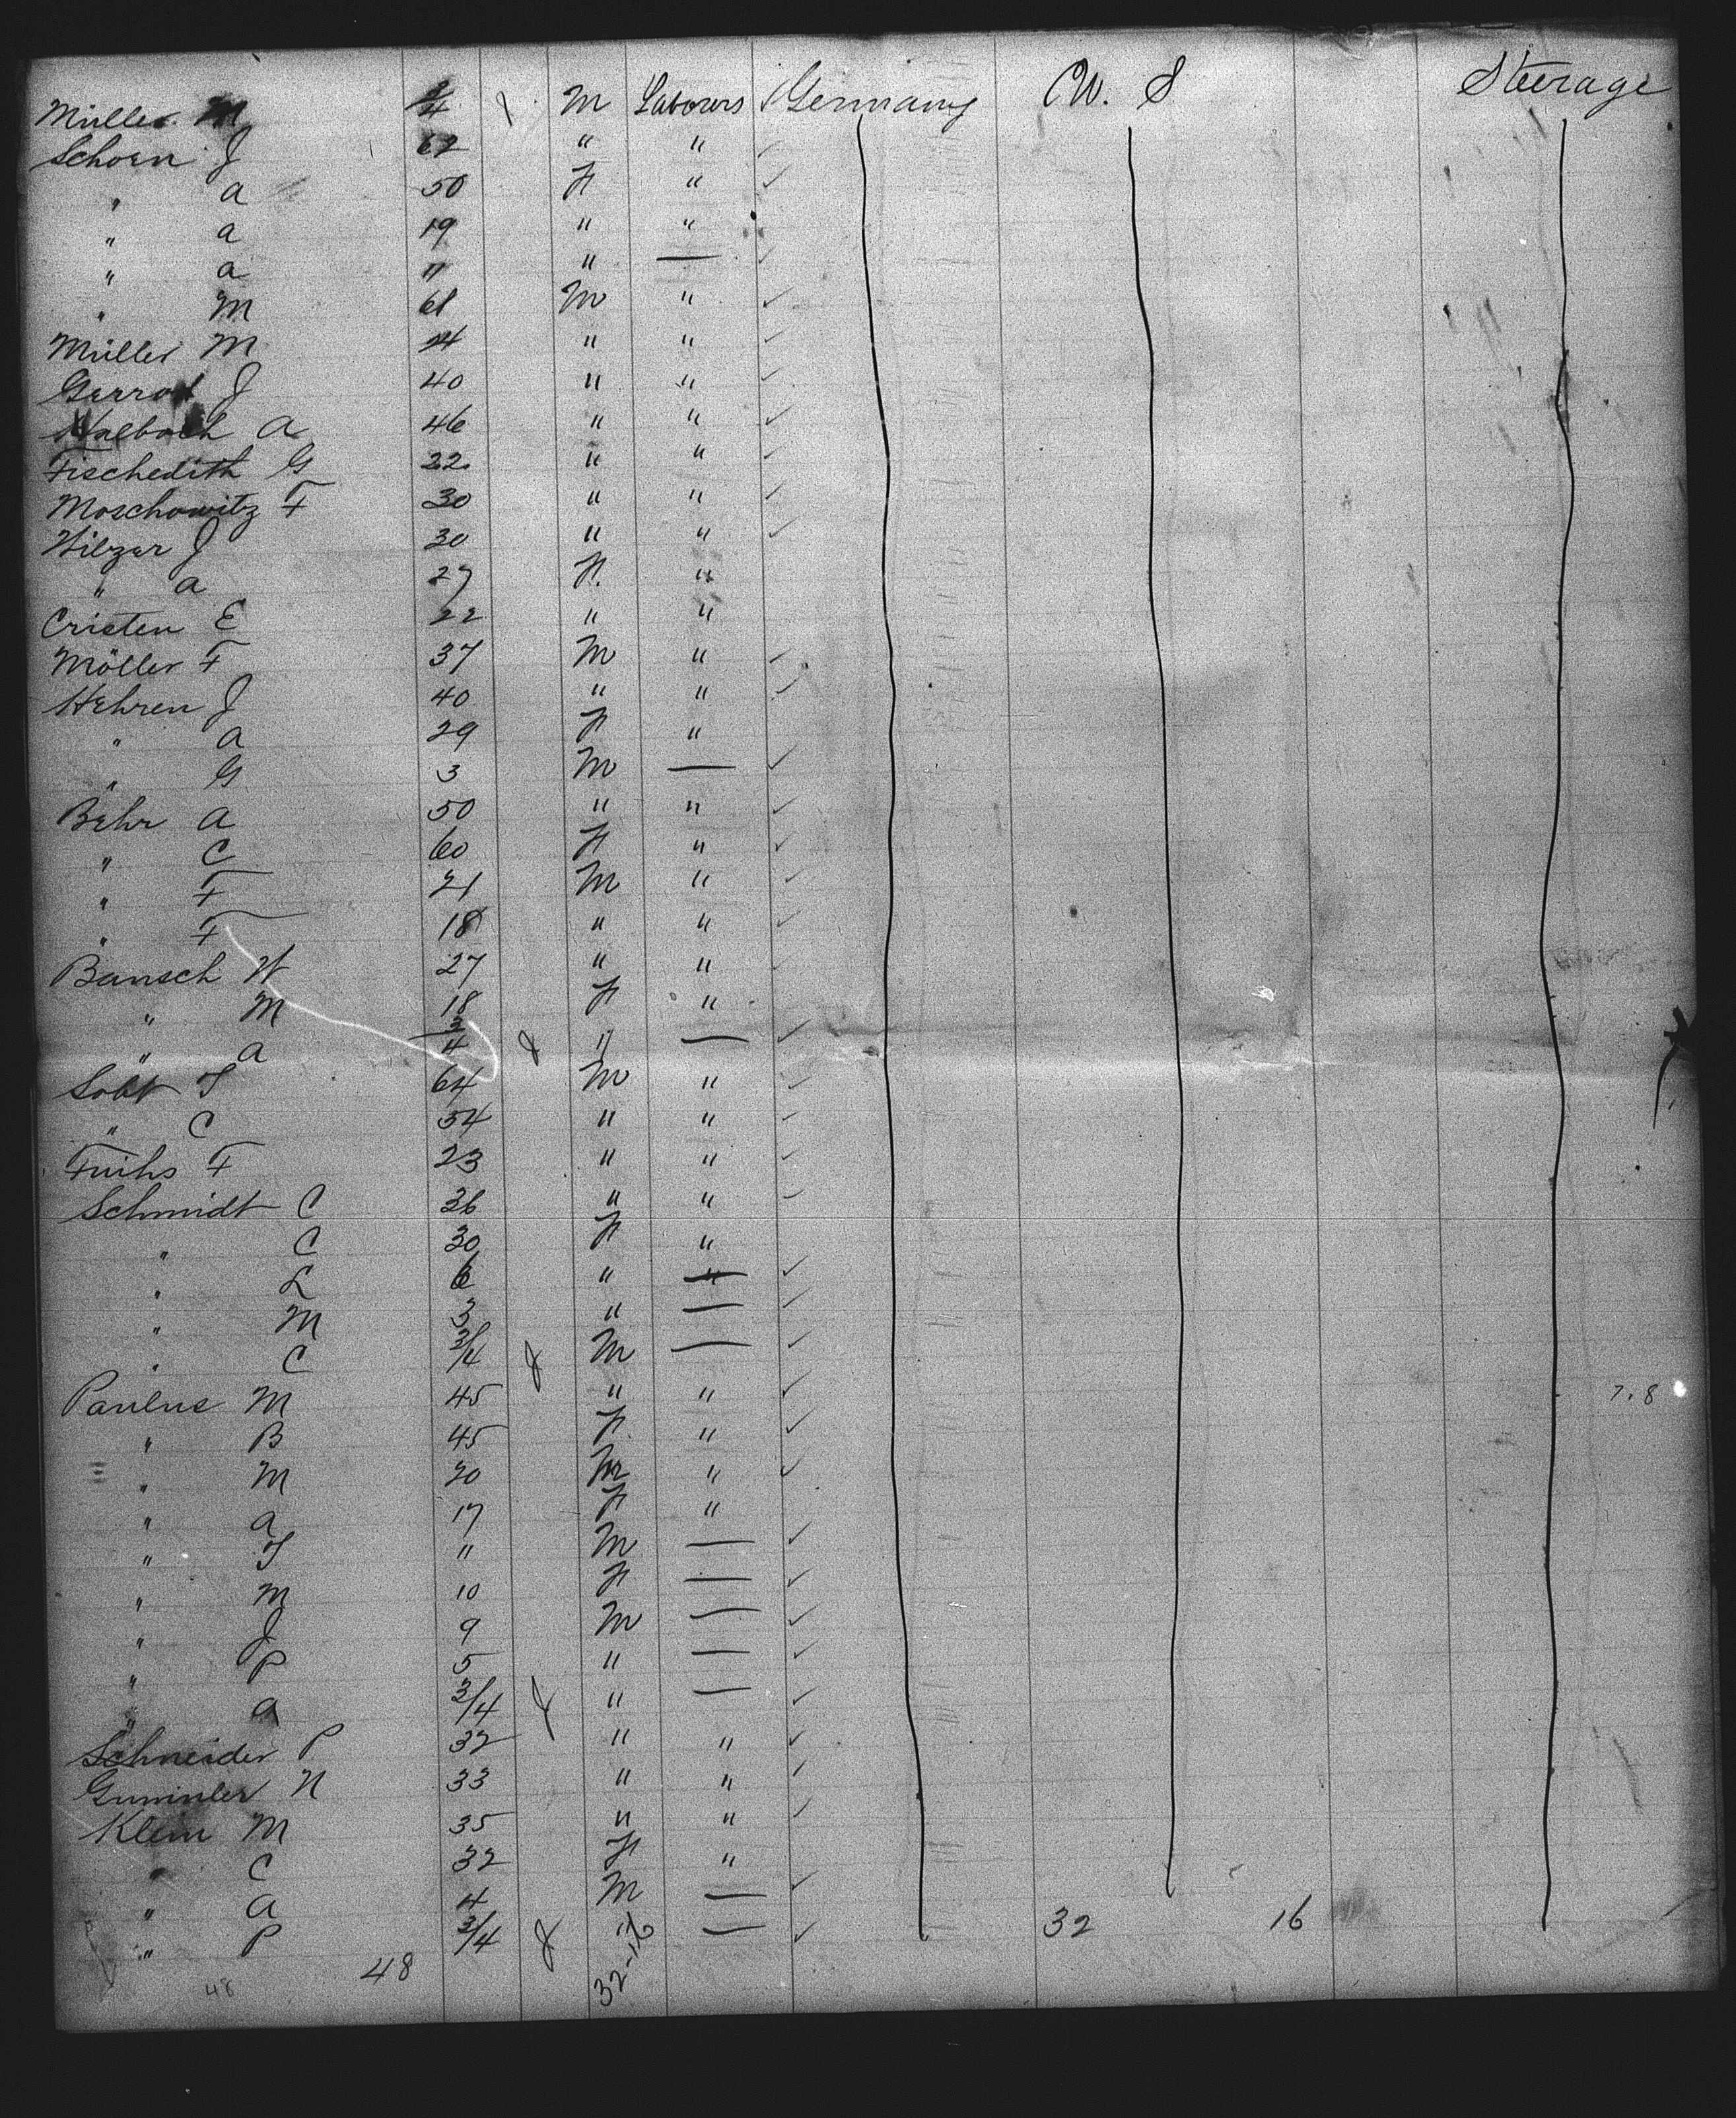 Müller M 3/4 M Labourers Germany W. S Steerage
Schoen J 62 " "
" a 50 F "
" a 19 " "
" a 11 " —
" M 61 M "
Müller M 24 " "
J 40 " "
a 46 " "
Fischedith G 22 " "
Moschowitz F 30 " "
Hilzar J 30 " "
" a 27 F. "
Cristen E 22 " "
Möller F 37 M "
Hehren J 40 " "
" a 29 F "
" G 3 M —
Behr a 50 " "
" C 60 F "
" F 21 M "
" F 18 " "
Bansch W 27 " "
" M 18 F "
" a 3/4 " —
Sobt T 64 M "
" C 54 " "
Fuihs F 23 " "
Schmidt C 36 " "
" C 30 F "
" L 6 " —
" M 3 " —
" C 3/4 M —
Paulus M 45 " "
" B 45 F "
" M 20 M "
" a 17 F "
" T 11 M —
" M 10 F —
" J 9 M —
" P 5 " —
" a 3/4 " —
Schneider P 32 " "
Gummler N 33 " "
Klein M 35 " "
" C 32 F "
" a 4 M —
" P 3/4 " — 32 16
48 48 32-16